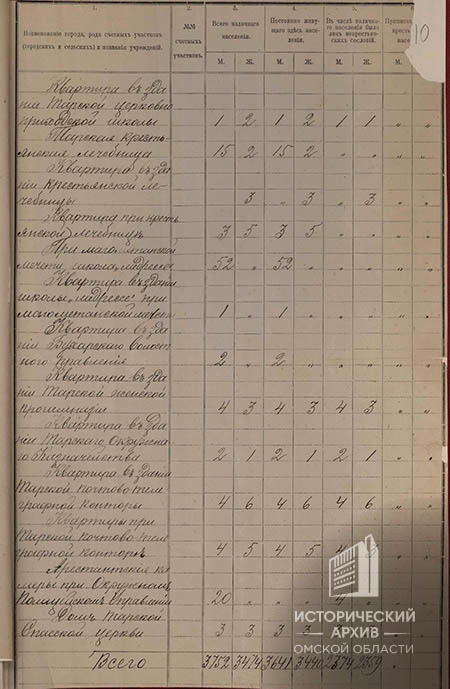 1. 2. 3. 4. 5. 6.
Наименованіе города, рода счетныхъ участковъ (городскихъ и сельскихъ) и названія учрежденій.
№№ счетныхъ участковъ.
Всего наличнаго населенія.
Постоянно живущаго здѣсь населенія.
Въ числѣ наличнаго населенія было лицъ некрестьянскихъ сословій.
М. Ж. М. Ж. М. Ж. М.
10
Квартира въ зда
ніи Тарской церковно
приходской школы 1 2 1 2 1 1 „ „
Тарская кресть-
янская лечебница 15 2 15 2 „ „ „ „
Квартира въ зда
ніи крестьянской ле-
чебницы „ 3 „ 3 „ 3 „ „
Квартира при кресть
янской лечебницѣ 3 5 3 5 „ „ „ „
При магометанской
мечети школа, медрессе 52 „ 52 „ „ „ „ „
Квартира въ зданіи
школы, медрессе при
магометанской мечети 1 „ 1 „ „ „ „ „
Квартира въ зда
ніи Бухарскаго волост
ного правленія 2 „ 2 „ „ „ „ „
Квартира въ зда
ніи Тарской женской
прогимназіи 4 3 4 3 4 3 „ „
Квартира въ зда
ніи Тарскаго Окружна
го Казначейства 2 1 2 1 2 1 „ „
Квартира въ зданіи
Тарской почтово-теле-
графной конторы 4 6 4 6 4 6 „ „
Квартиры при
Тарской почтово-теле
графной конторѣ 4 5 4 5 4
Арестантскія ка
меры при Окружномъ
Полицейскомъ Управленіи 20 „ „ „ 4
Домъ Тарской
Спасской церкви 3 3 3 3
Всего 3752 3474 3641 3440 2374 2359
ИСТОРИЧЕСКИЙ
АРХИВ
ОМСКОЙ ОБЛАСТИ